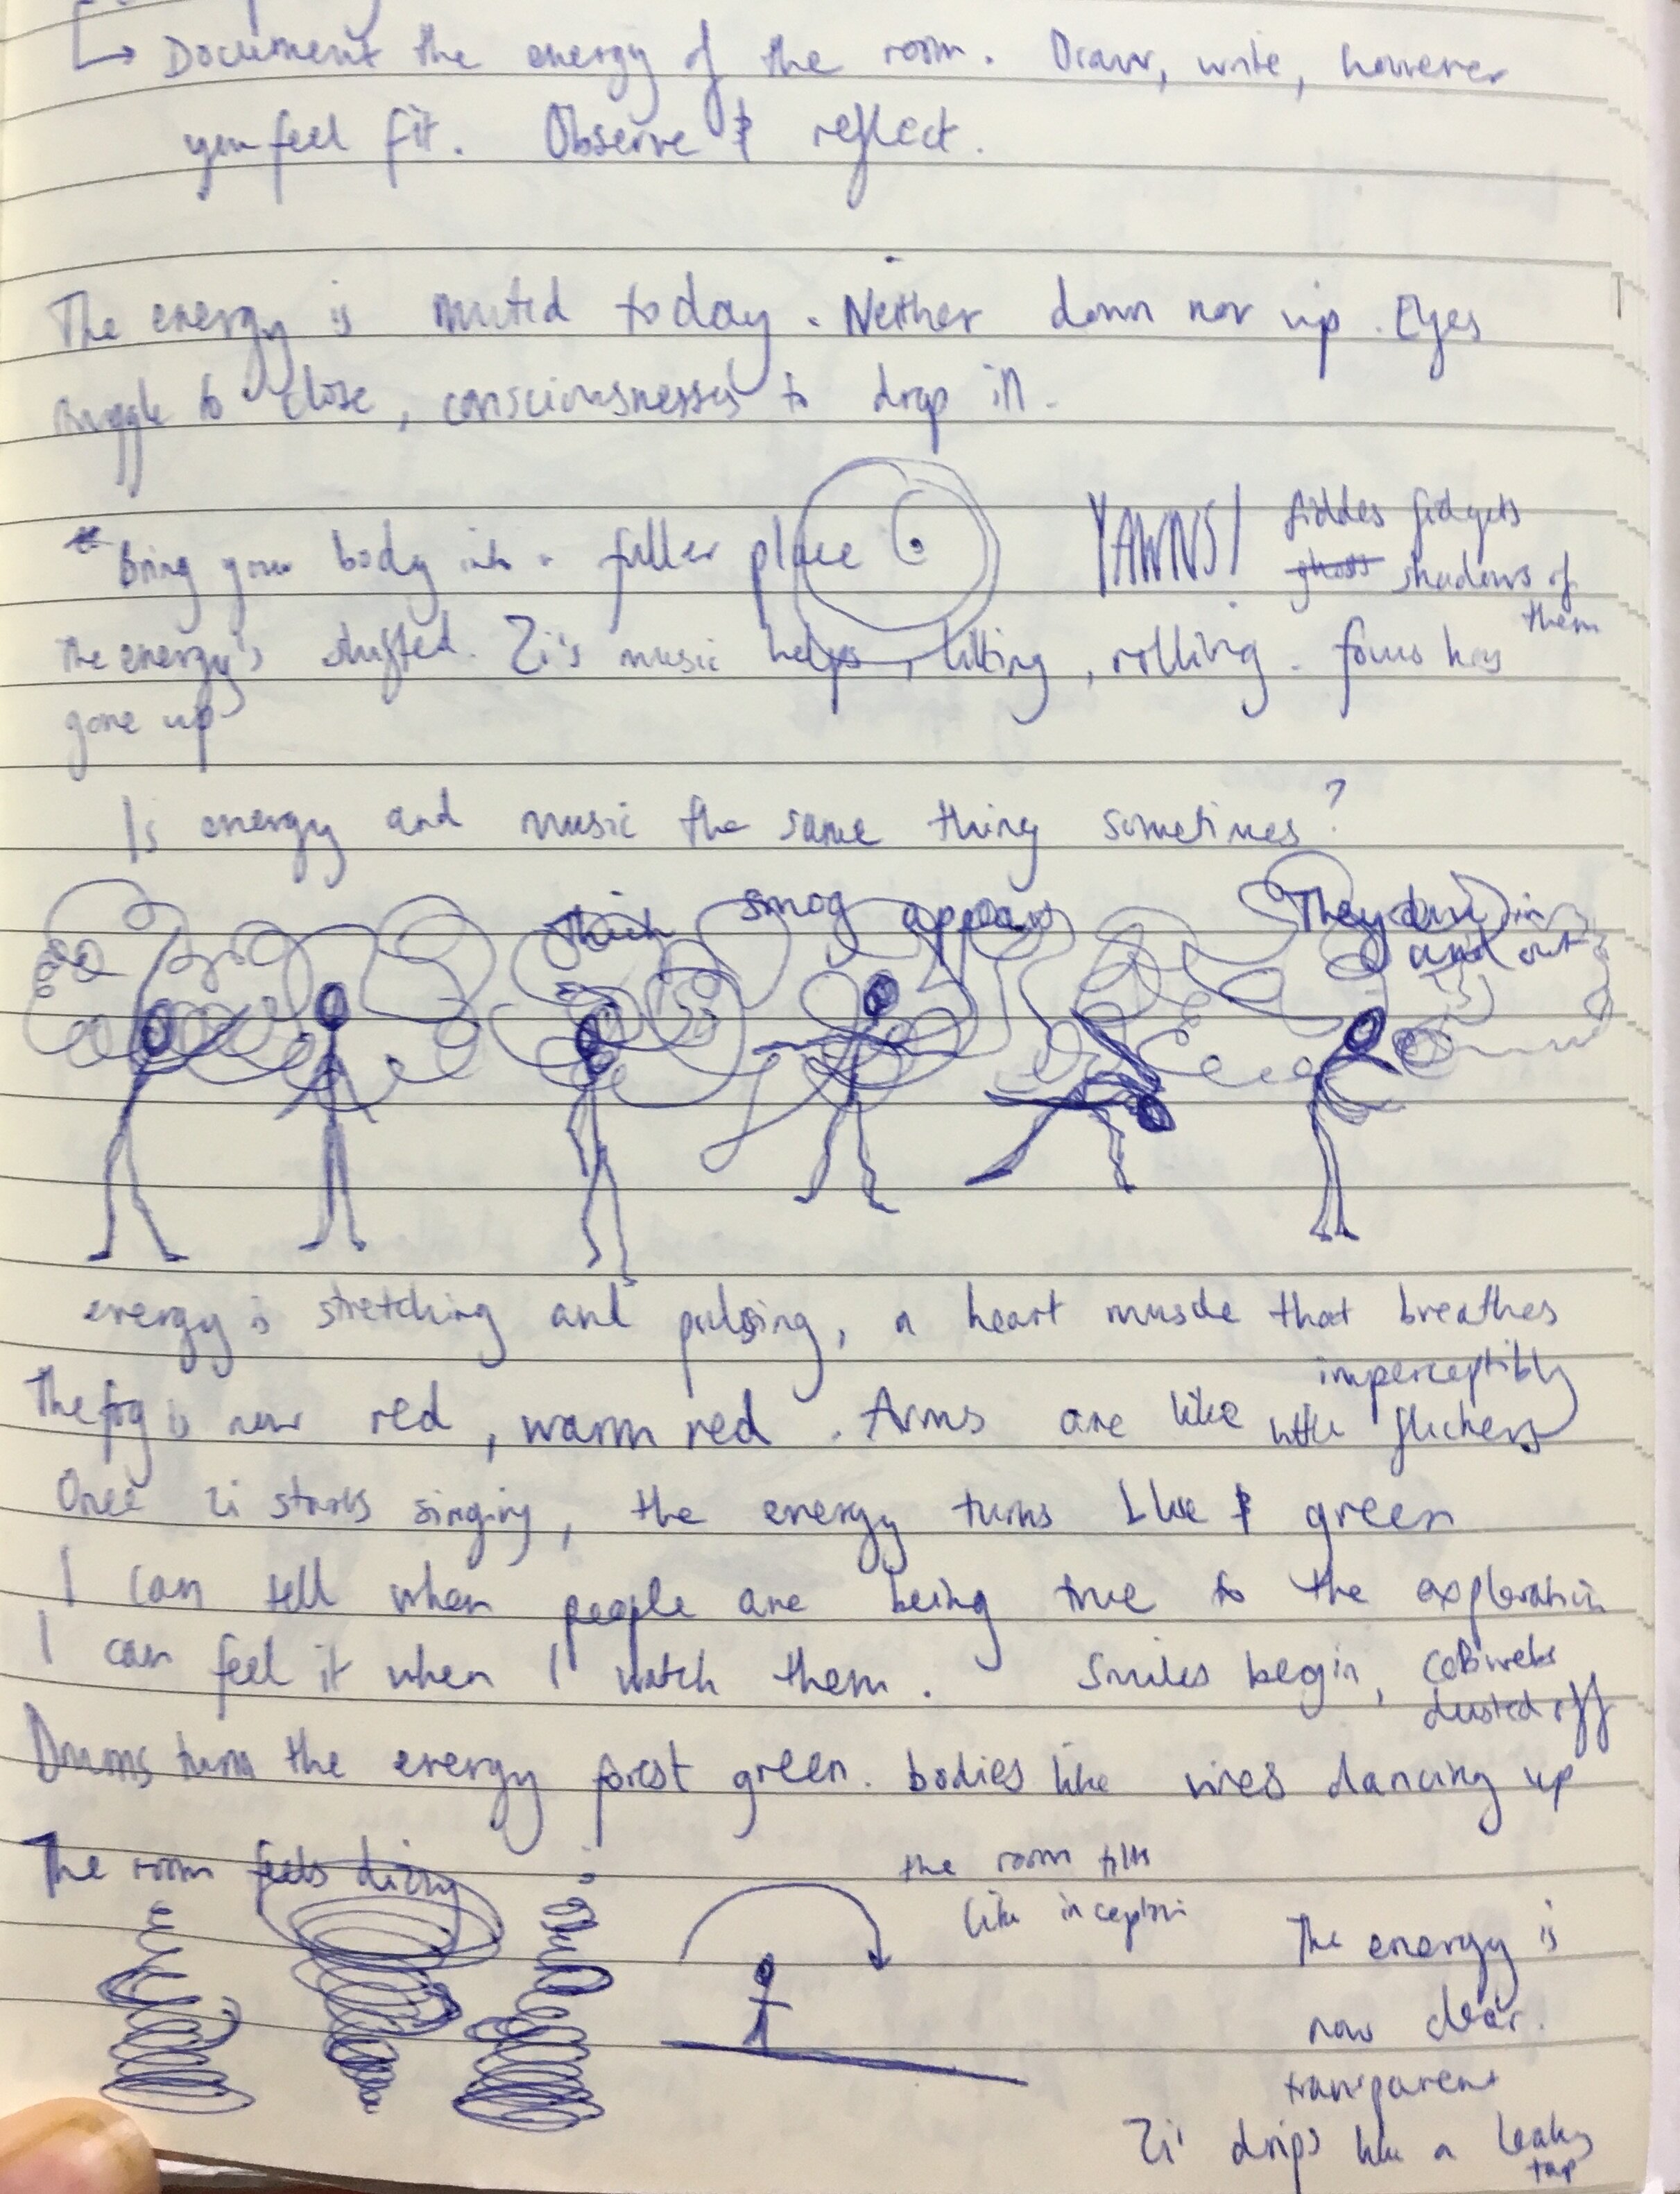 ↳ Document the energy of the room. Draw, write, however
you feel fit. Observe & reflect.
The energy is muted today. Neither down nor up. Eyes
struggle to close, consciousnesses to drop in.
Bring your body into a fuller place
YAWNS!
fiddles fidgets
ghosts shadows of
them
The energy's shifted. Zi's music helps, lilting, rolling. focus has
gone up
Is energy and music the same thing sometimes?
Thick smog appears
They dive in
and out
energy is stretching and pulsing, a heart muscle that breathes
imperceptibly
The fog is now red, warm red. Arms are like little flickers
Once Zi starts singing, the energy turns blue & green
I can tell when people are being true to the exploration
I can feel it when I watch them. Smiles begin, coBwebs
dusted off
Drums turn the energy forest green. bodies like vines dancing up
The room feels dizzy
the room tilts
like inception
The energy is
now clear.
transparent
Zi drips like a leaky
tap